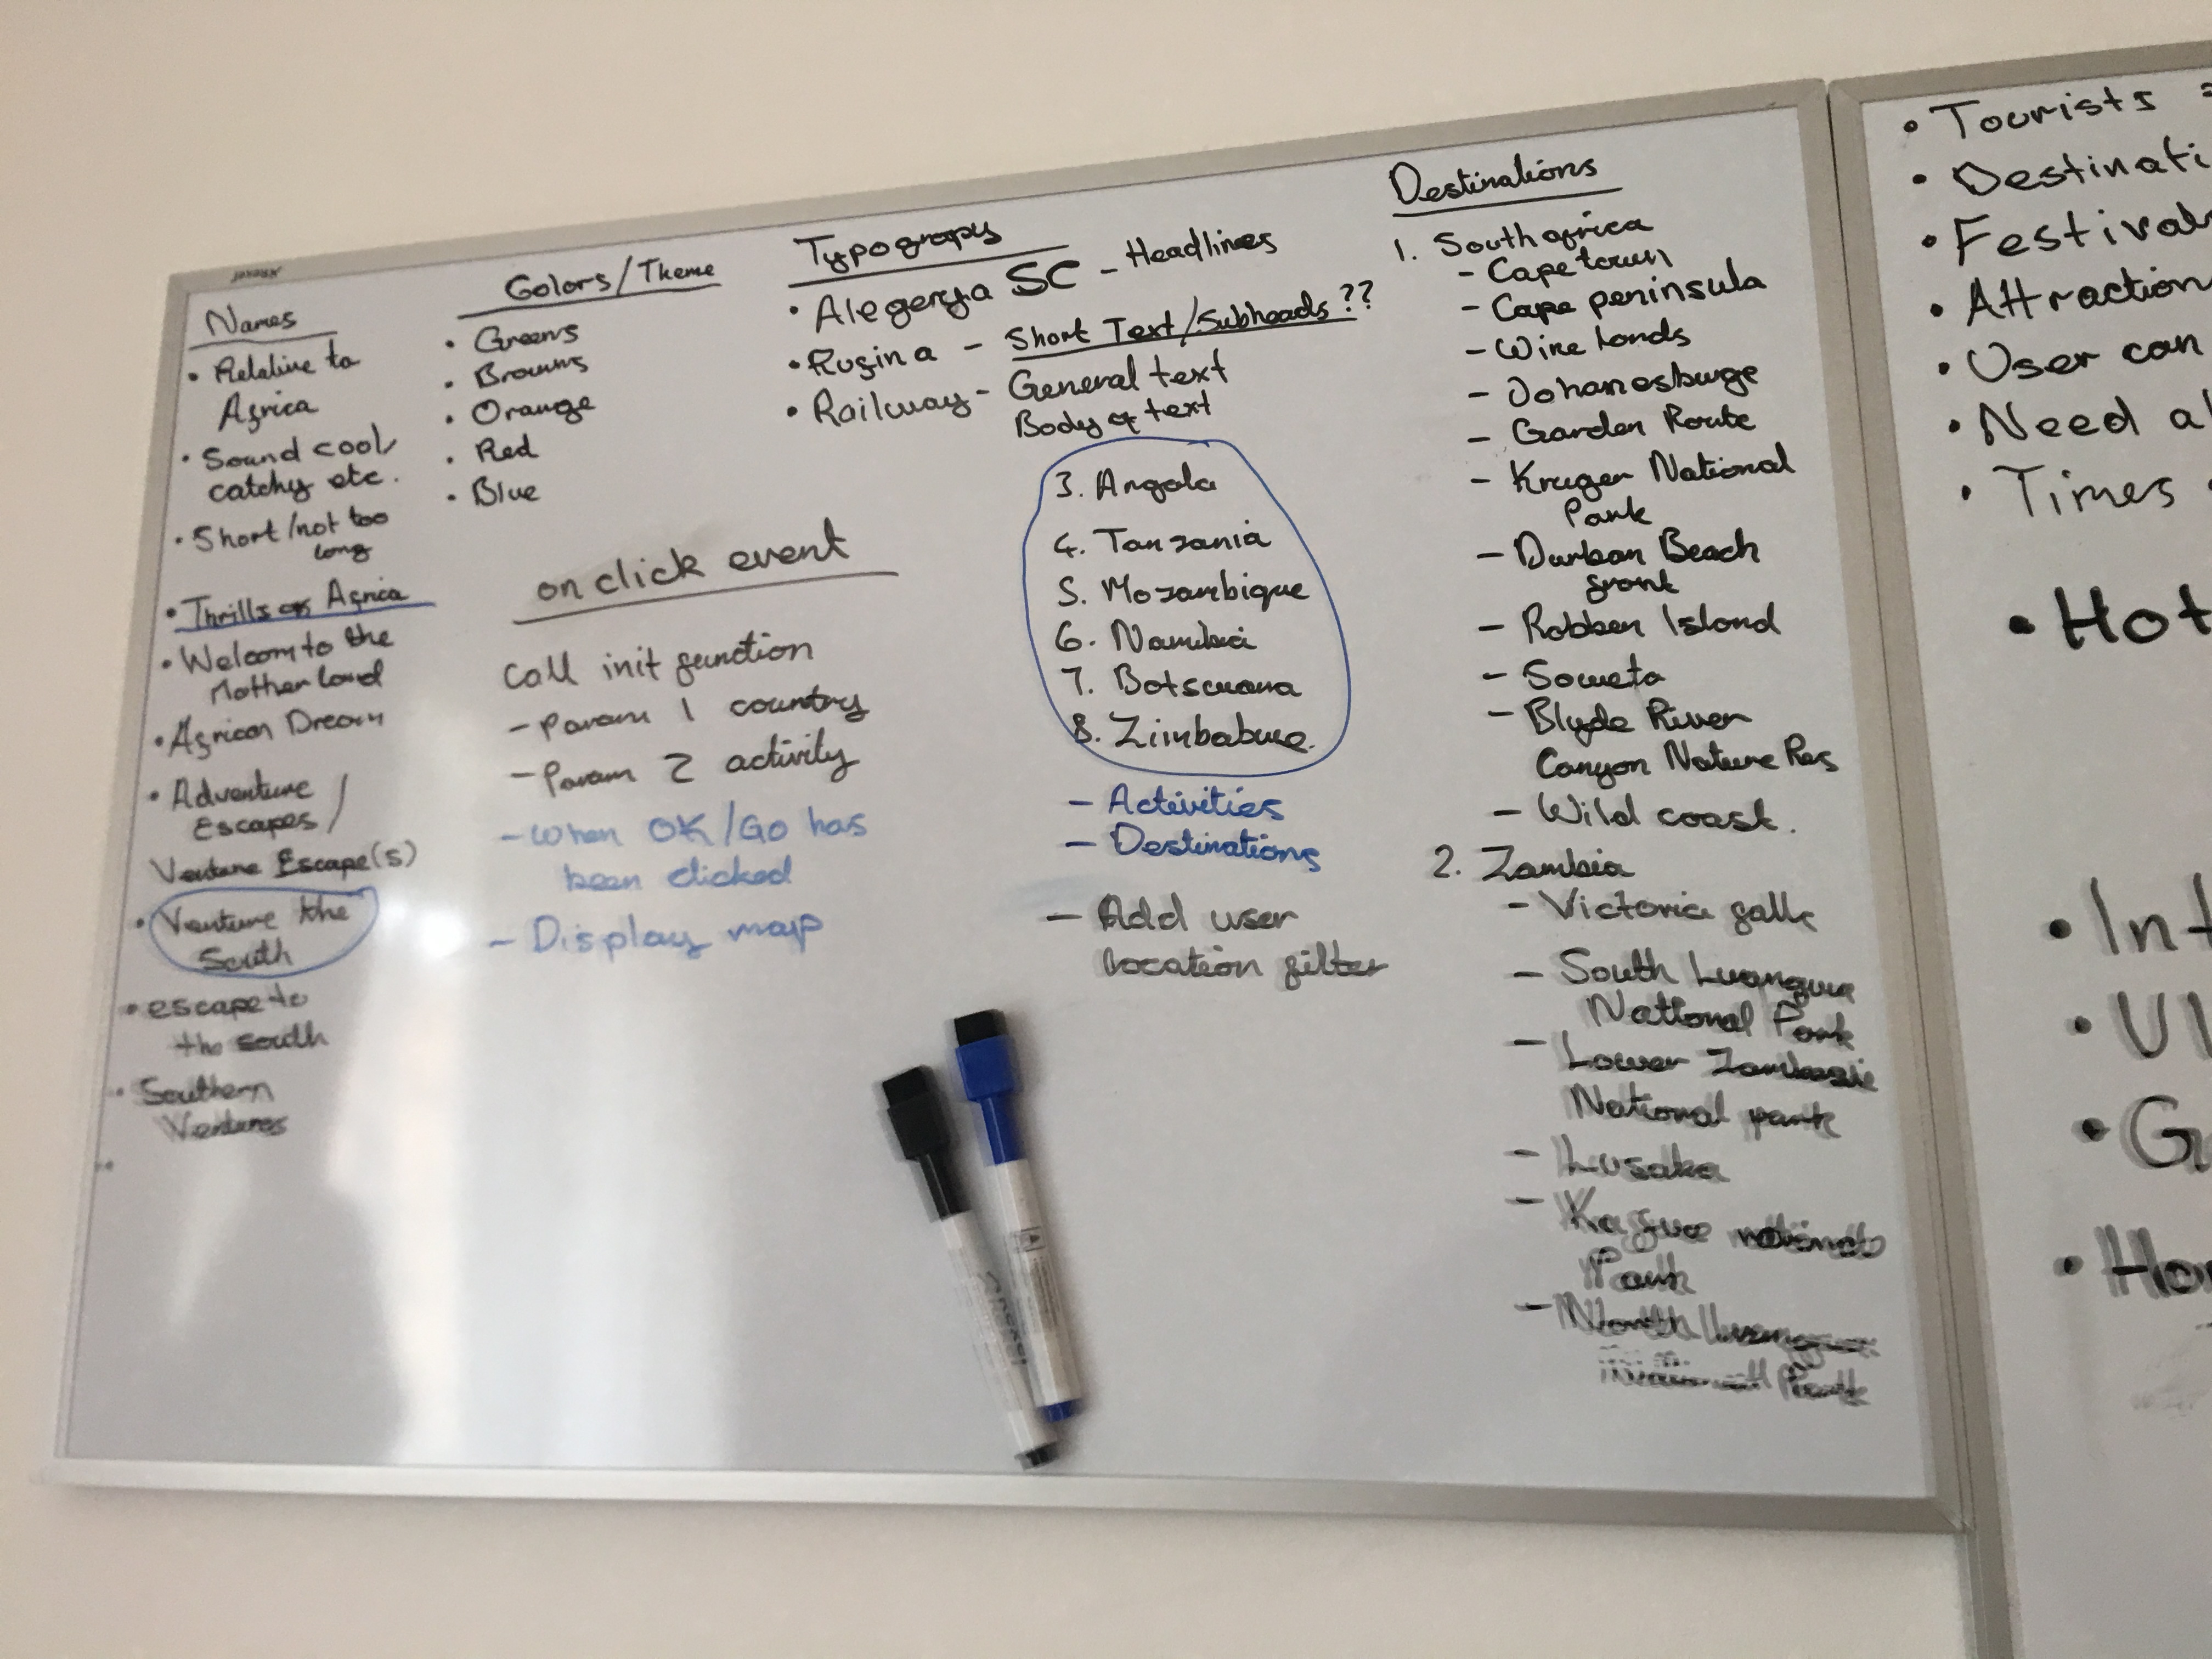 Names
• Relative to
Africa
• Sound cool,
catchy etc.
• Short/not too
long
• Thrills of Africa
• Welcom to the
Mother land
• African Dream
• Adventure /
Escapes /
Venture Escape(s)
• Venture the
South
• escape to
the south
• Southern
Ventures
•
Colors/Theme
• Greens
• Browns
• Orange
• Red
• Blue
on click event
Call init function
- Param 1 country
- Param 2 activity
- When OK/Go has
been clicked
- Display map
Typograpy
• Alegerya SC - Headlines
• Rusina - Short Text/Subheads??
• Railway - General text
Body of text
3. Angola
4. Tanzania
5. Mozambique
6. Namibia
7. Botswana
8. Zimbabwe.
- Activities
- Destinations
- Add user
location filter
Destinations
1. South africa
- Cape town
- Cape peninsula
- Wine lands
- Johanesburge
- Garden Route
- Kruger National
Park
- Durban Beach
front
- Robben Island
- Soweto
- Blyde River
Canyon Nature Res
- Wild coast.
2. Zambia
- Victoria falls
- South Luangwa
National Park
- Lower Zambezie
National park
- Lusaka
- Kafue national
Park
- North
Park
• Tourists
• Destinati
• Festival
• Attraction
• User can
• Need a
• Times
• Hot
• Int
• UI
• G
• Ho